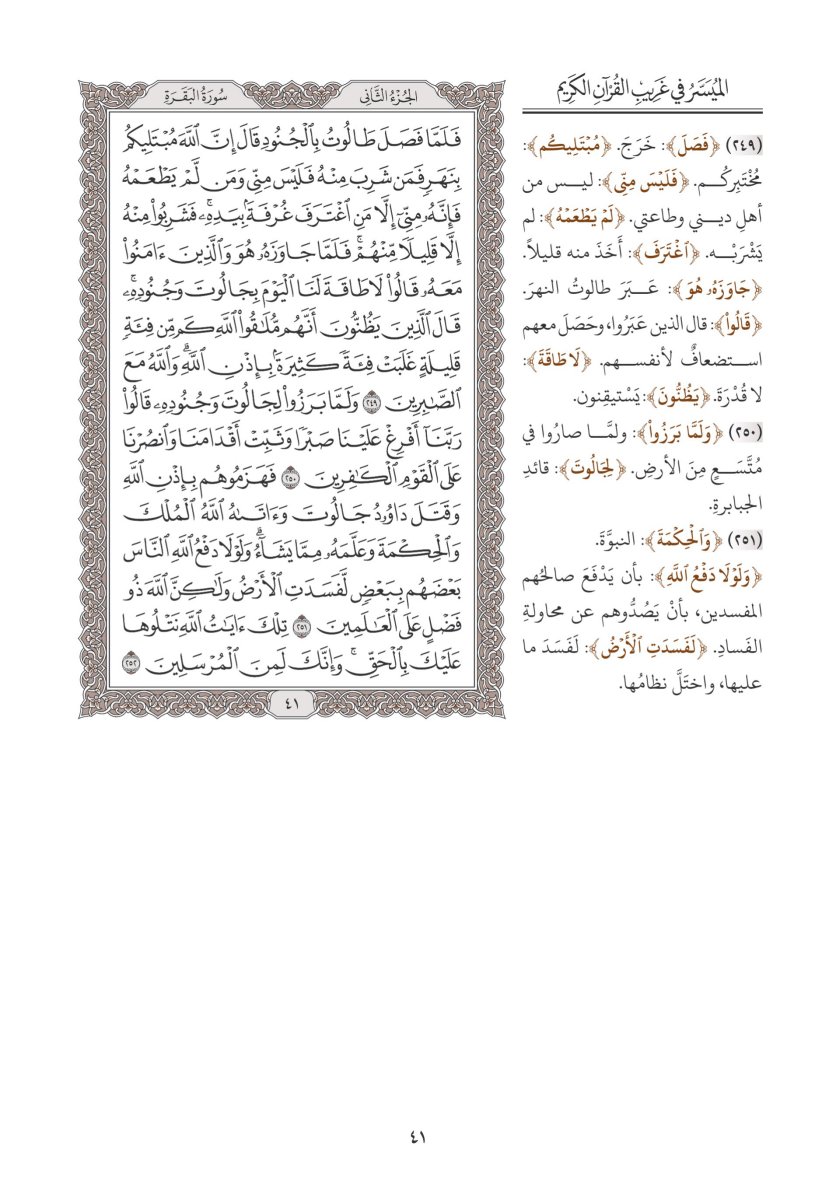 الميسر في غريب القرآن الكريم
(٢٤٩) ﴿فَصَلَ﴾: خَرَجَ. ﴿مُبۡتَلِيكُم﴾:
مُخْتَبِرِكُم. ﴿فَلَيۡسَ مِنِّي﴾: ليس من
أهلِ ديني وطاعتي. ﴿لَمۡ يَطۡعَمۡهُ﴾: لم
يَشْرَبْه. ﴿ٱغۡتَرَفَ﴾: أَخَذَ منه قليلاً.
﴿جَاوَزَهُۥ هُوَ﴾: عَبَرَ طالوتُ النهرَ.
﴿قَالُواْ﴾: قال الذين عَبَرُوا، وحَصَلَ معهم
استضعافٌ لأنفسهم. ﴿لَا طَاقَةَ﴾:
لا قُدْرَةَ. ﴿يَظُنُّونَ﴾: يَسْتيقِنون.
(٢٥٠) ﴿وَلَمَّا بَرَزُواْ﴾: ولمَّا صارُوا في
مُتَّسَعٍ مِنَ الأرضِ. ﴿لِجَالُوتَ﴾: قائدِ
الجبابرةِ.
(٢٥١) ﴿وَٱلۡحِكۡمَةَ﴾: النبوَّةَ.
﴿وَلَوۡلَا دَفۡعُ ٱللَّهِ﴾: بأن يَدْفَعَ صالحُهم
المفسدين، بأنْ يَصُدُّوهم عن محاولةِ
الفَسادِ. ﴿لَفَسَدَتِ ٱلۡأَرۡضُ﴾: لَفَسَدَ ما
عليها، واختَلَّ نظامُها.
الجُزْءُ الثَّانِي
سُورَةُ البَقَرَةِ
فَلَمَّا فَصَلَ طَالُوتُ بِٱلۡجُنُودِ قَالَ إِنَّ ٱللَّهَ مُبۡتَلِيكُم
بِنَهَرٖ فَمَن شَرِبَ مِنۡهُ فَلَيۡسَ مِنِّي وَمَن لَّمۡ يَطۡعَمۡهُ
فَإِنَّهُۥ مِنِّيٓ إِلَّا مَنِ ٱغۡتَرَفَ غُرۡفَةَۢ بِيَدِهِۦۚ فَشَرِبُواْ مِنۡهُ
إِلَّا قَلِيلٗا مِّنۡهُمۡۚ فَلَمَّا جَاوَزَهُۥ هُوَ وَٱلَّذِينَ ءَامَنُواْ
مَعَهُۥ قَالُواْ لَا طَاقَةَ لَنَا ٱلۡيَوۡمَ بِجَالُوتَ وَجُنُودِهِۦۚ
قَالَ ٱلَّذِينَ يَظُنُّونَ أَنَّهُم مُّلَٰقُواْ ٱللَّهِ كَم مِّن فِئَةٖ
قَلِيلَةٍ غَلَبَتۡ فِئَةٗ كَثِيرَةَۢ بِإِذۡنِ ٱللَّهِۗ وَٱللَّهُ مَعَ
ٱلصَّٰبِرِينَ ٢٤٩ وَلَمَّا بَرَزُواْ لِجَالُوتَ وَجُنُودِهِۦ قَالُواْ
رَبَّنَآ أَفۡرِغۡ عَلَيۡنَا صَبۡرٗا وَثَبِّتۡ أَقۡدَامَنَا وَٱنصُرۡنَا
عَلَى ٱلۡقَوۡمِ ٱلۡكَٰفِرِينَ ٢٥٠ فَهَزَمُوهُم بِإِذۡنِ ٱللَّهِ
وَقَتَلَ دَاوُۥدُ جَالُوتَ وَءَاتَىٰهُ ٱللَّهُ ٱلۡمُلۡكَ
وَٱلۡحِكۡمَةَ وَعَلَّمَهُۥ مِمَّا يَشَآءُۗ وَلَوۡلَا دَفۡعُ ٱللَّهِ ٱلنَّاسَ
بَعۡضَهُم بِبَعۡضٖ لَّفَسَدَتِ ٱلۡأَرۡضُ وَلَٰكِنَّ ٱللَّهَ ذُو
فَضۡلٍ عَلَى ٱلۡعَٰلَمِينَ ٢٥١ تِلۡكَ ءَايَٰتُ ٱللَّهِ نَتۡلُوهَا
عَلَيۡكَ بِٱلۡحَقِّۚ وَإِنَّكَ لَمِنَ ٱلۡمُرۡسَلِينَ ٢٥٢
٤١
٤١